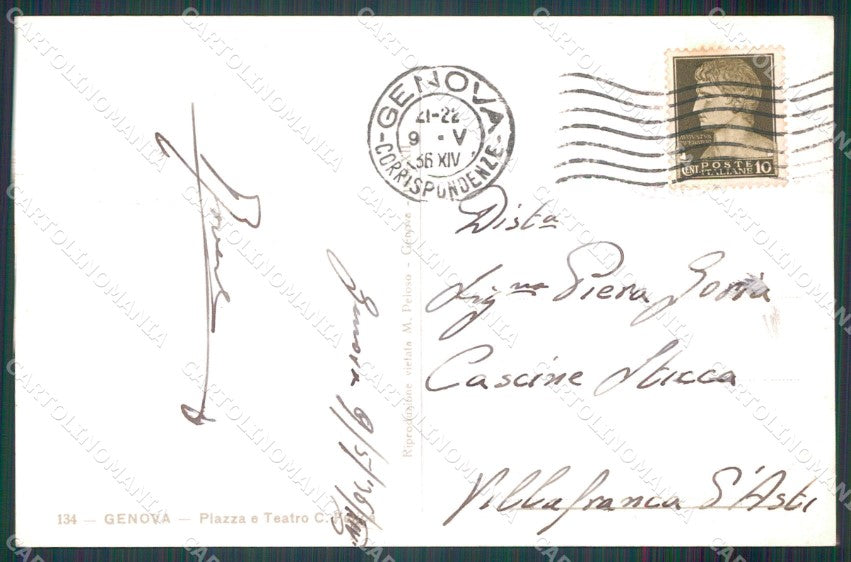 GENOVA
21-22
9 - V
36 XIV
CORRISPONDENZE
POSTE
ITALIANE
CENT. 10
Dist.a
Sig.na Piera Goria
Cascine Stecca
Villafranca d'Asti
Genova 9/5/36/XIV
Riproduzione vietata M. Peloso - Genova
134 — GENOVA — Piazza e Teatro C.
CARTOLINOMANIA